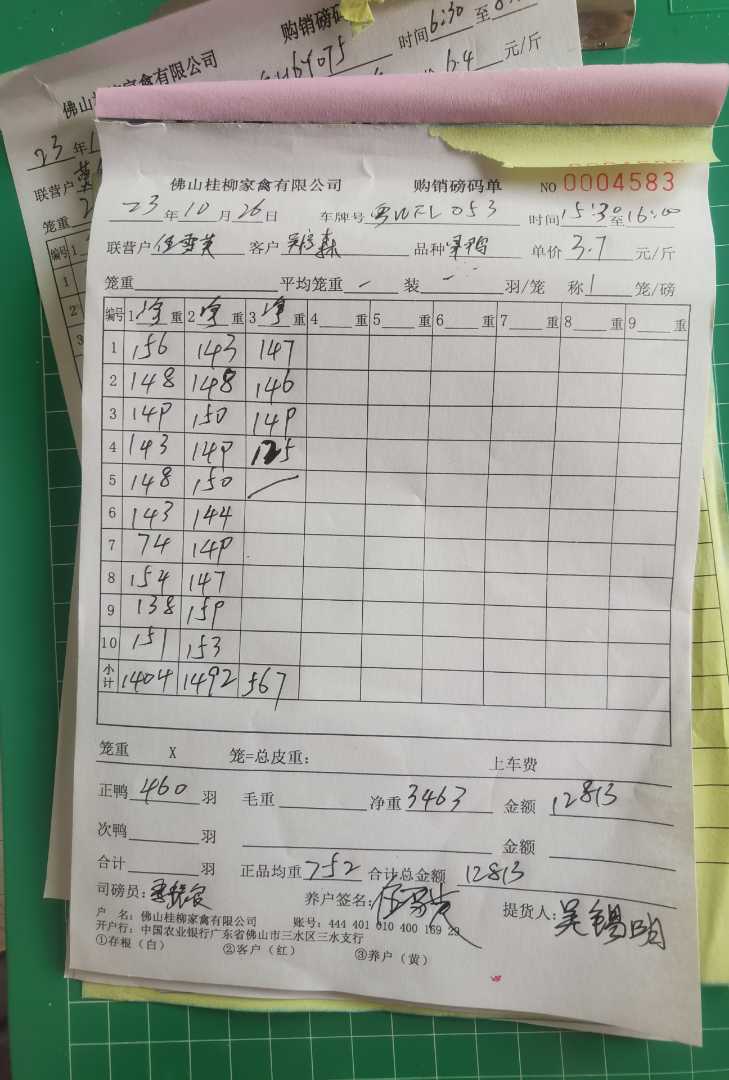 购销磅码
时间6:30至
佛山桂柳家禽有限公司
6.4元/斤
23年
联营户
笼重
编号1
1
2
3
佛山桂柳家禽有限公司 购销磅码单 NO 0004583
23年10月26日 车牌号 053 时间15:30至16:00
联营户 客户 品种 单价3.7元/斤
笼重 平均笼重 — 装 — 羽/笼 称1笼/磅
编号 1净重 2净重 3净重 4重 5重 6重 7重 8重 9重
1 156 143 147
2 148 148 146
3 149 150 149
4 143 149 125
5 148 150
6 143 144
7 74 149
8 154 147
9 138 159
10 151 153
小计 1404 1492 567
笼重 X 笼=总皮重: 上车费
正鸭460羽 毛重 净重3463 金额12813
次鸭 羽 金额
合计 羽 正品均重7.52 合计总金额12813
司磅员: 养户签名: 提货人:吴锡明
户 名:佛山桂柳家禽有限公司 账号:444 401 010 400 169 29
开户行:中国农业银行广东省佛山市三水区三水支行
①存根(白) ②客户(红) ③养户(黄)